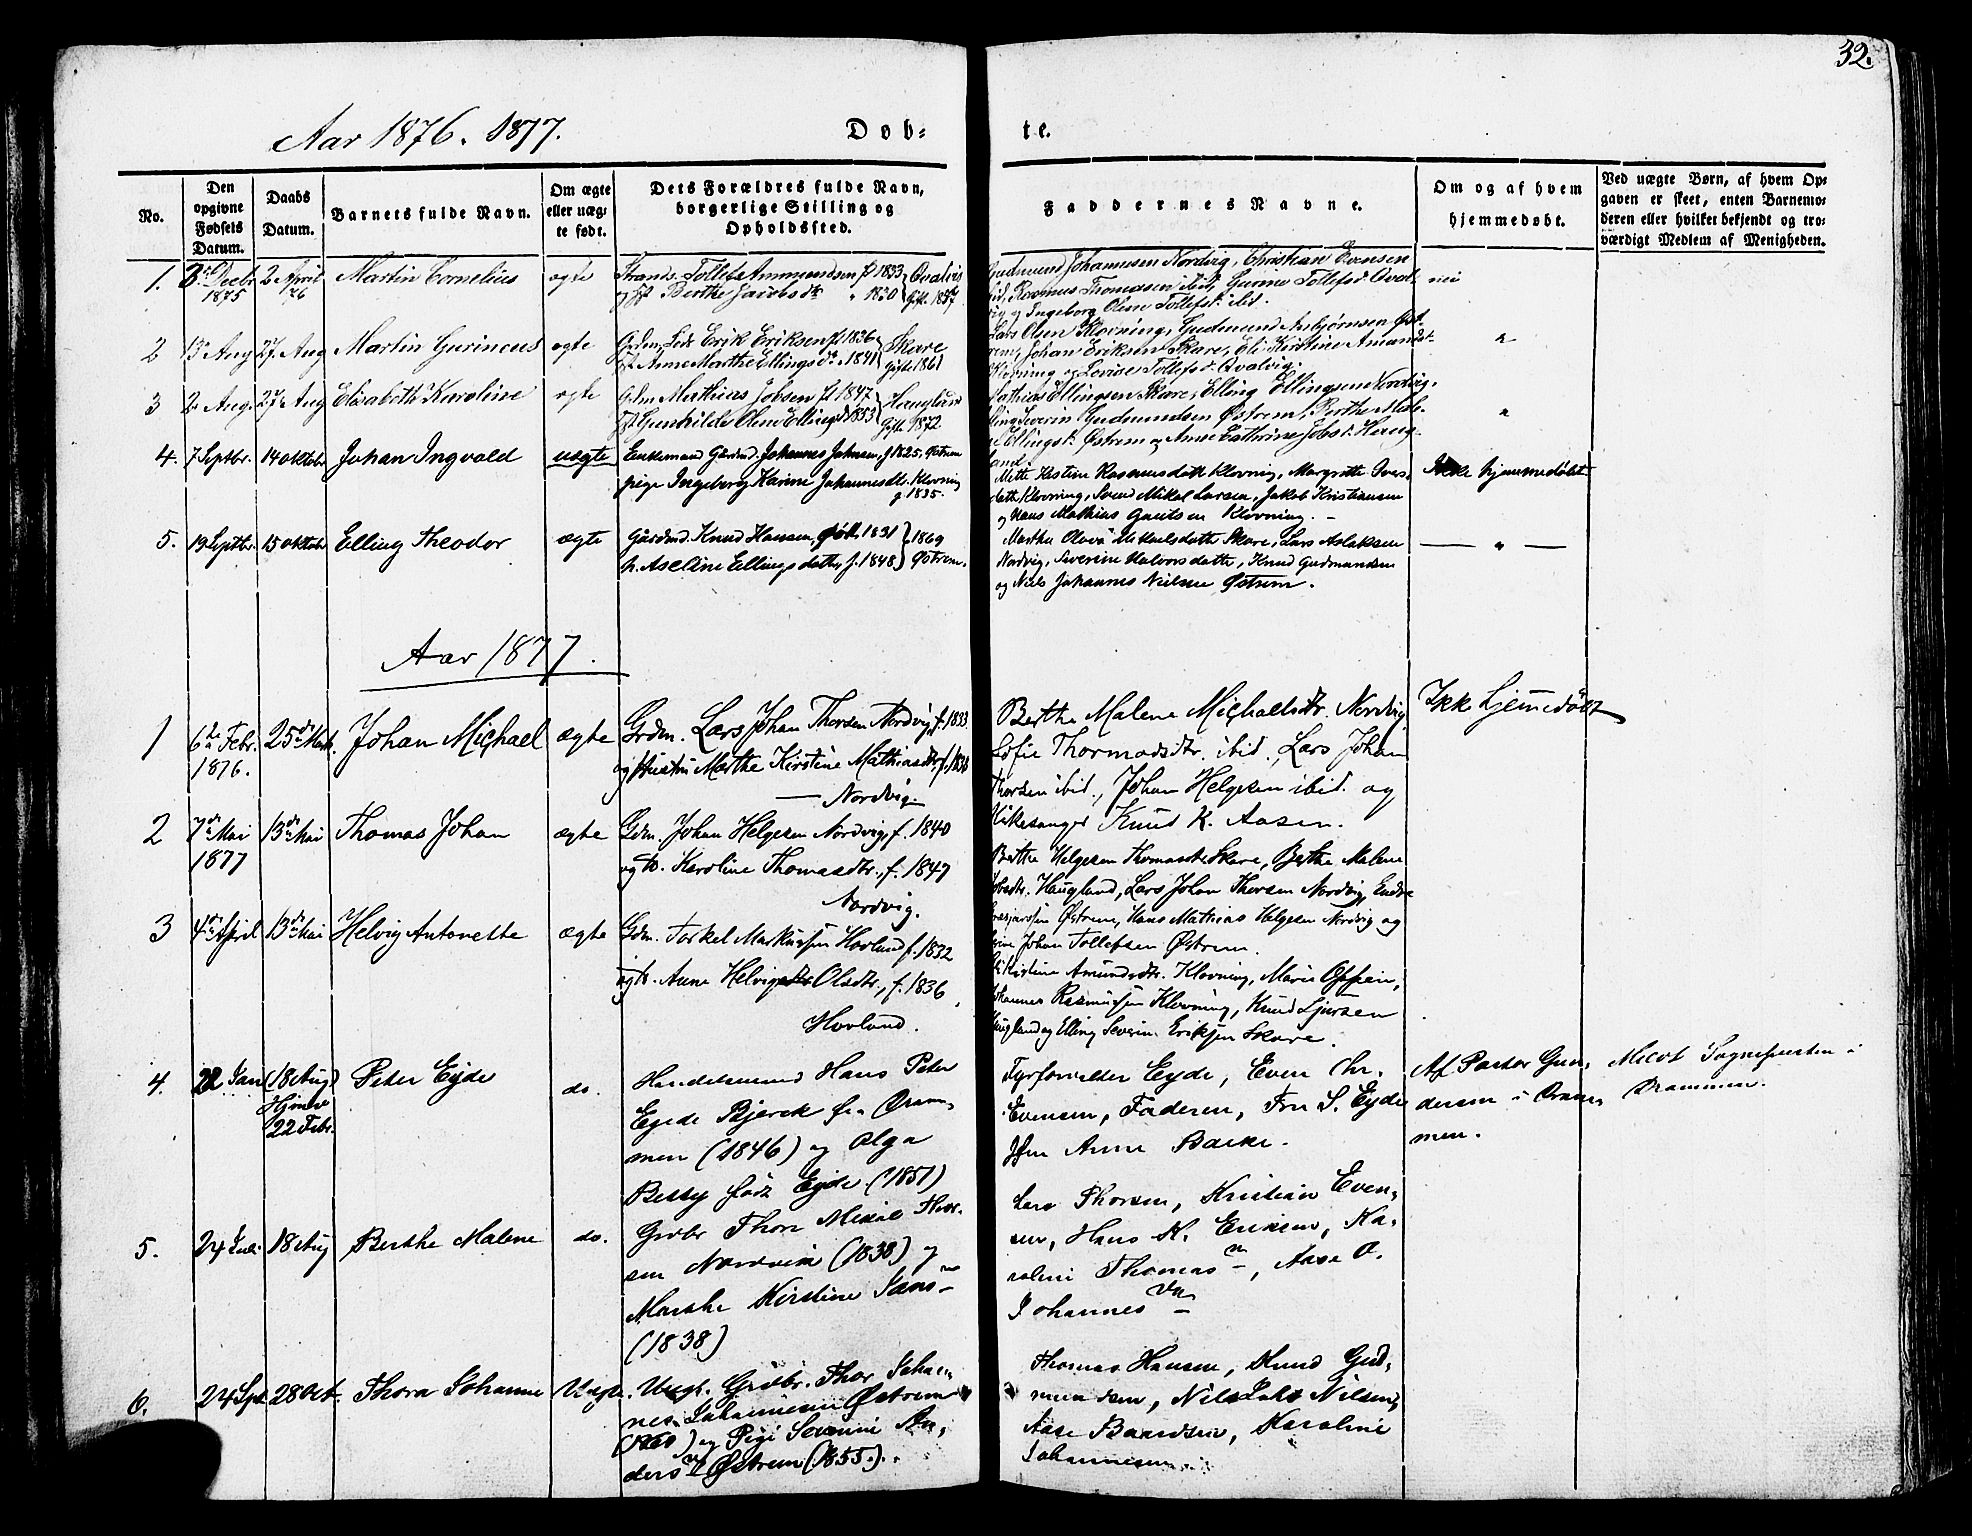 32.
Aar 1876. 1877.
Døb-
te.
No.
Den opgivne Fødsels Datum.
Daabs Datum.
Barnets fulde Navn.
Om ægte eller uægte født.
Dets Forældres fulde Navn, borgerlige Stilling og Opholdssted.
Faddernes Navne.
Om og af hvem hjemmedøbt.
Ved uægte Børn, af hvem Opgaven er skeet, enten Barnemoderen eller hvilket bekjendt og troværdigt Medlem af Menigheden.
1. 3 Decbr 1875 2 April 76 Martin Cornelius ægte
Strands. Tolleb Ammundsen f 1833 Qvalvig
og Berthe Jacobsdtr 1830 Gift 1857
Gudmund Johannesen Nordvig, Christian Evensen
ibid, Rasmus Thomassen ibid, Gurine Tollefsd Qval-
vig og Ingeborg Oline Tollefsd. ibid.
nei
2 13 Aug 27 Aug Martin Gurineus ægte
Erik Eriksen f 1836 Skare
Anne Marthe Ellingsdr. 1841 Gift 1861
Lars Olsen Klovning, Gudmund Asbjørnsen Øst-
rem, Johan Eriksen Skare, Eli Kirstine Amundsd.
Klovning og Lovise Tollefsd. Qvalvig.
"
3 2 Aug. 27 Aug Elisabeth Karoline ægte
Gdm Mathias Jobsen f 1847 Haugland
Gunhilde Oline Ellingsd 1853 Gift 1872
Mathias Ellingsen Skare, Elling Ellingsen Nordvig,
Elling Severin Gudmundsen Østrem, Berthe Male-
ne Ellingsd. Østrem og Anne Cathrine Jobsd. Haug-
land.
"
4. 7 Septbr. 14 oktober Johan Ingvald uægte
Enkemand Gårdmd. Johannes Johnsen, f 1825. Østrem
pige Ingeborg Karine Johannesdtr. Klovning
f 1835.
Mette Kistine Rasmusdatt Klovning, Margrethe Ivers-
datt. Klovning, Svend Mikal Larsen, Jakob Kristiansen
og Hans Mathias Gautsen Klovning. -
Ikke hjemmedøbt
5. 19 Septbr. 15 oktober Elling Theodor ægte
Gårdmd. Knud Hansen, født 1831 1869
h. Aseline Ellingsdatter, f. 1848 Østrem.
Martha Oliva Mikalsdatte Skare, Lars Aslaksen
Nordvig, Severine Halvorsdatte, Knud Gudmundsen
og Niels Johannes Nielsen Østrem.
— " —
Aar 1877.
1 6 Febr. 1876. 25 Marts. Johan Michael ægte
Grdm. Lars Johan Thorsen Nordvig, f. 1833
og Hustru Marthe Kirstine Mathiasdtr. f. 1838
— Nordvig.
Berthe Malene Michaelsdtr. Nordvig,
Sofie Thormodsdtr. ibid., Lars Johan
Thorsen ibid., Johan Helgesen ibid. og
Kirkesanger Knud K. Aasen.
Ikk hjemmedøbt
2 7 Mai 1877 13 Mai Thomas Johan ægte
Gdm. Johan Helgesen Nordvig, f. 1840
og h. Karoline Thomasdtr., f. 1847
Nordvig.
Berthe Helgesen Thomasdtr Skare, Berthe Malene
Jobsdtr. Haugland, Lars Johan Thorsen Nordvig, Endre
Østrem, Hans Mathias Helgesen Nordvig og
Johan Tollefsen Østrem.
3 4 April 13 Mai Helvig Antonette ægte
Gdm. Torkel Markussen Hovland f. 1832
og h. Anne Helvig Olsdtr., f. 1836
Hovland.
Eli Kistine Amundsdtr. Klovning, Marie Oppen,
Johannes Rasmussen Klovning, Knud Sjursen
Haugland og Elling Severin Eriksen Skare.
4. 22 Jan (18 Aug) Hjemme 22 Febr. Peter Eyde do.
Handelsmand Hans Peter
Egede Bjerck fra Dram-
men (1846) og Olga
Bessy født Eyde (1851)
Fyrforvalter Eyde, Even Chr.
Evensen, Faderen, Fru S. Eyde
Anne Barke.
Af Pastor Gun-
dersen i Dram-
men.
Meldt Sognepresten i
Drammen.
5. 24 Juli 18 Aug Berthe Malene do.
Grdbr Thore Mikal Thor-
sen Nordvik (1838) og
Marthe Kirstine Jans-
(1838)
Lars Thorsen, Kristian Even-
sen, Hans K. Eriksen, Ka-
roline Thomas-, Aase O.
Johannes-
6. 24 Spt 28 Oct. Thora Johanne Uægte.
Ungk. Grdbr. Thor Johan-
nes Johannesen Østrem
(1850) og Pige Severine An-
ders Østrem (1855).
Thomas Hansen, Knud Gud-
mundsen, Nils Nilsen,
Aase Baardsen, Karoline
Johannesen